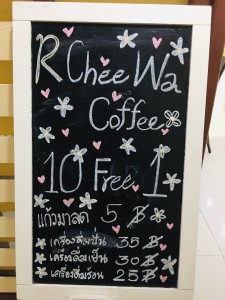 R Chee Wa
Coffee
10 Free 1
แก้วมาลด 5 ฿
เครื่องดื่มปั่น 35 ฿
เครื่องดื่มเย็น 30 ฿
เครื่องดื่มร้อน 25 ฿